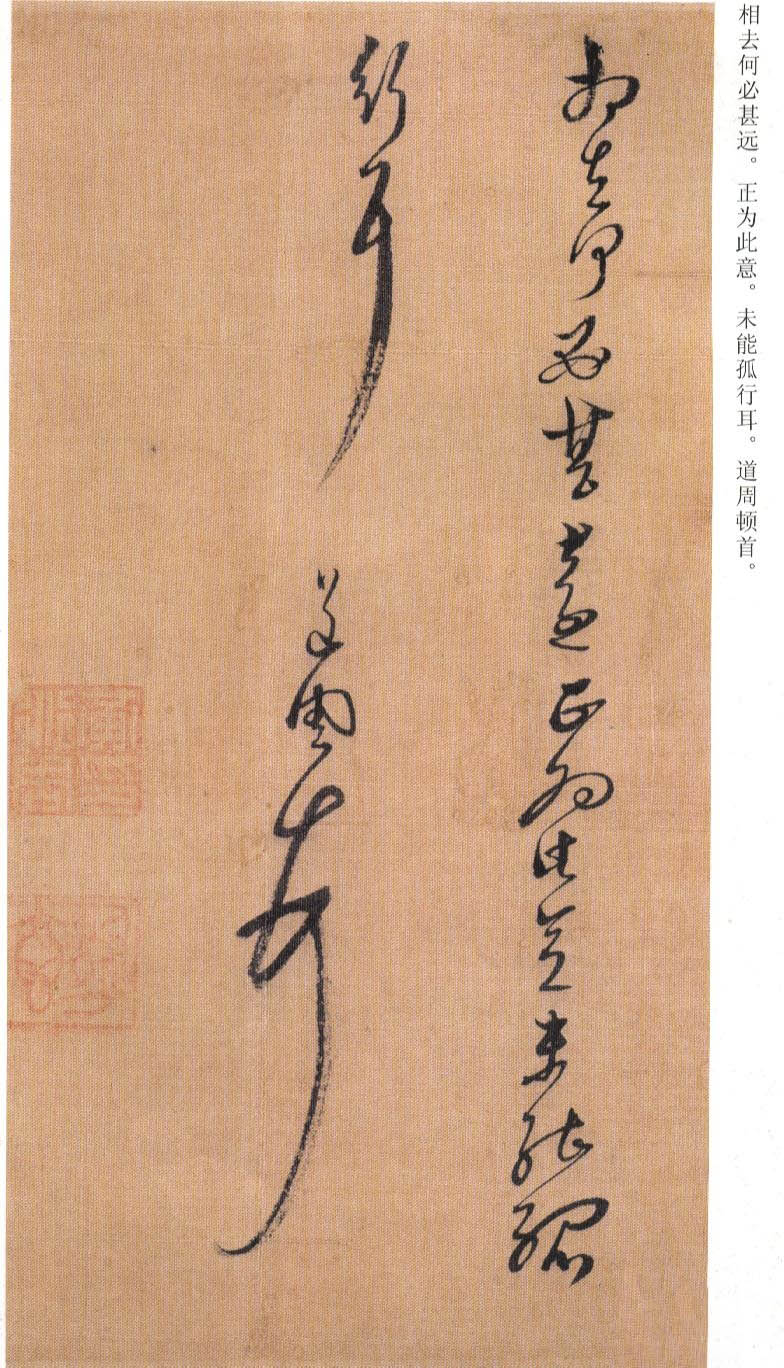 相去何必甚远。正为此意。未能孤行耳。道周顿首。
相去何必甚遠正為此意未能孤
行耳
道周頓首